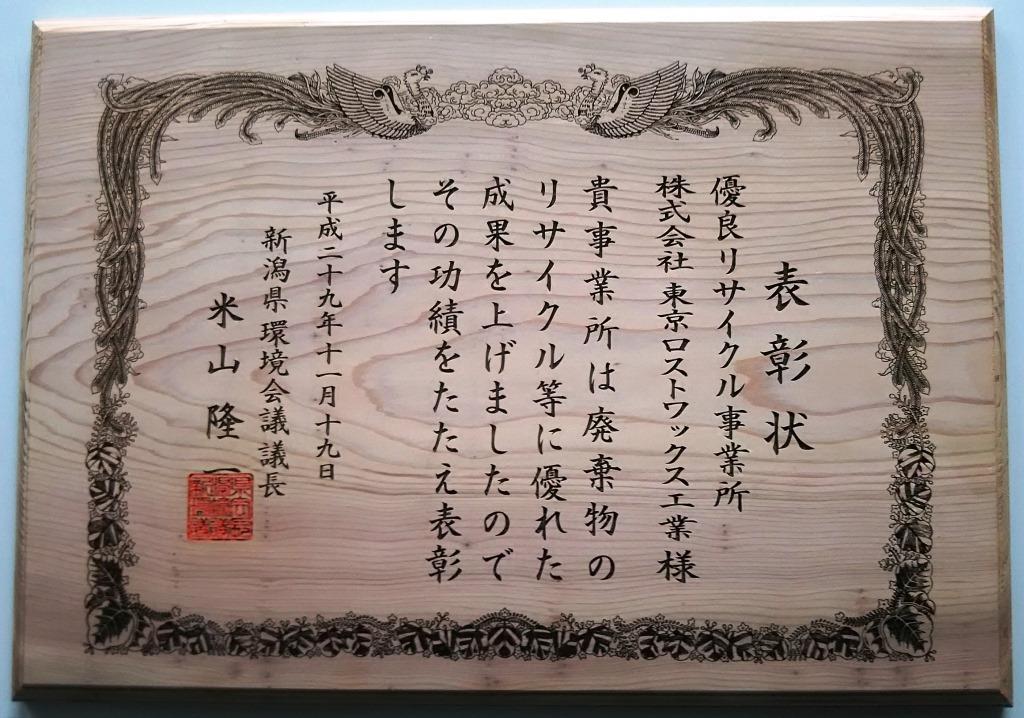 表彰状
優良リサイクル事業所
株式会社 東京ロストワックス工業 様
貴事業所は廃棄物の
リサイクル等に優れた
成果を上げましたので
その功績をたたえ表彰
します
平成二十九年十一月十九日
新潟県環境会議議長
米山隆一